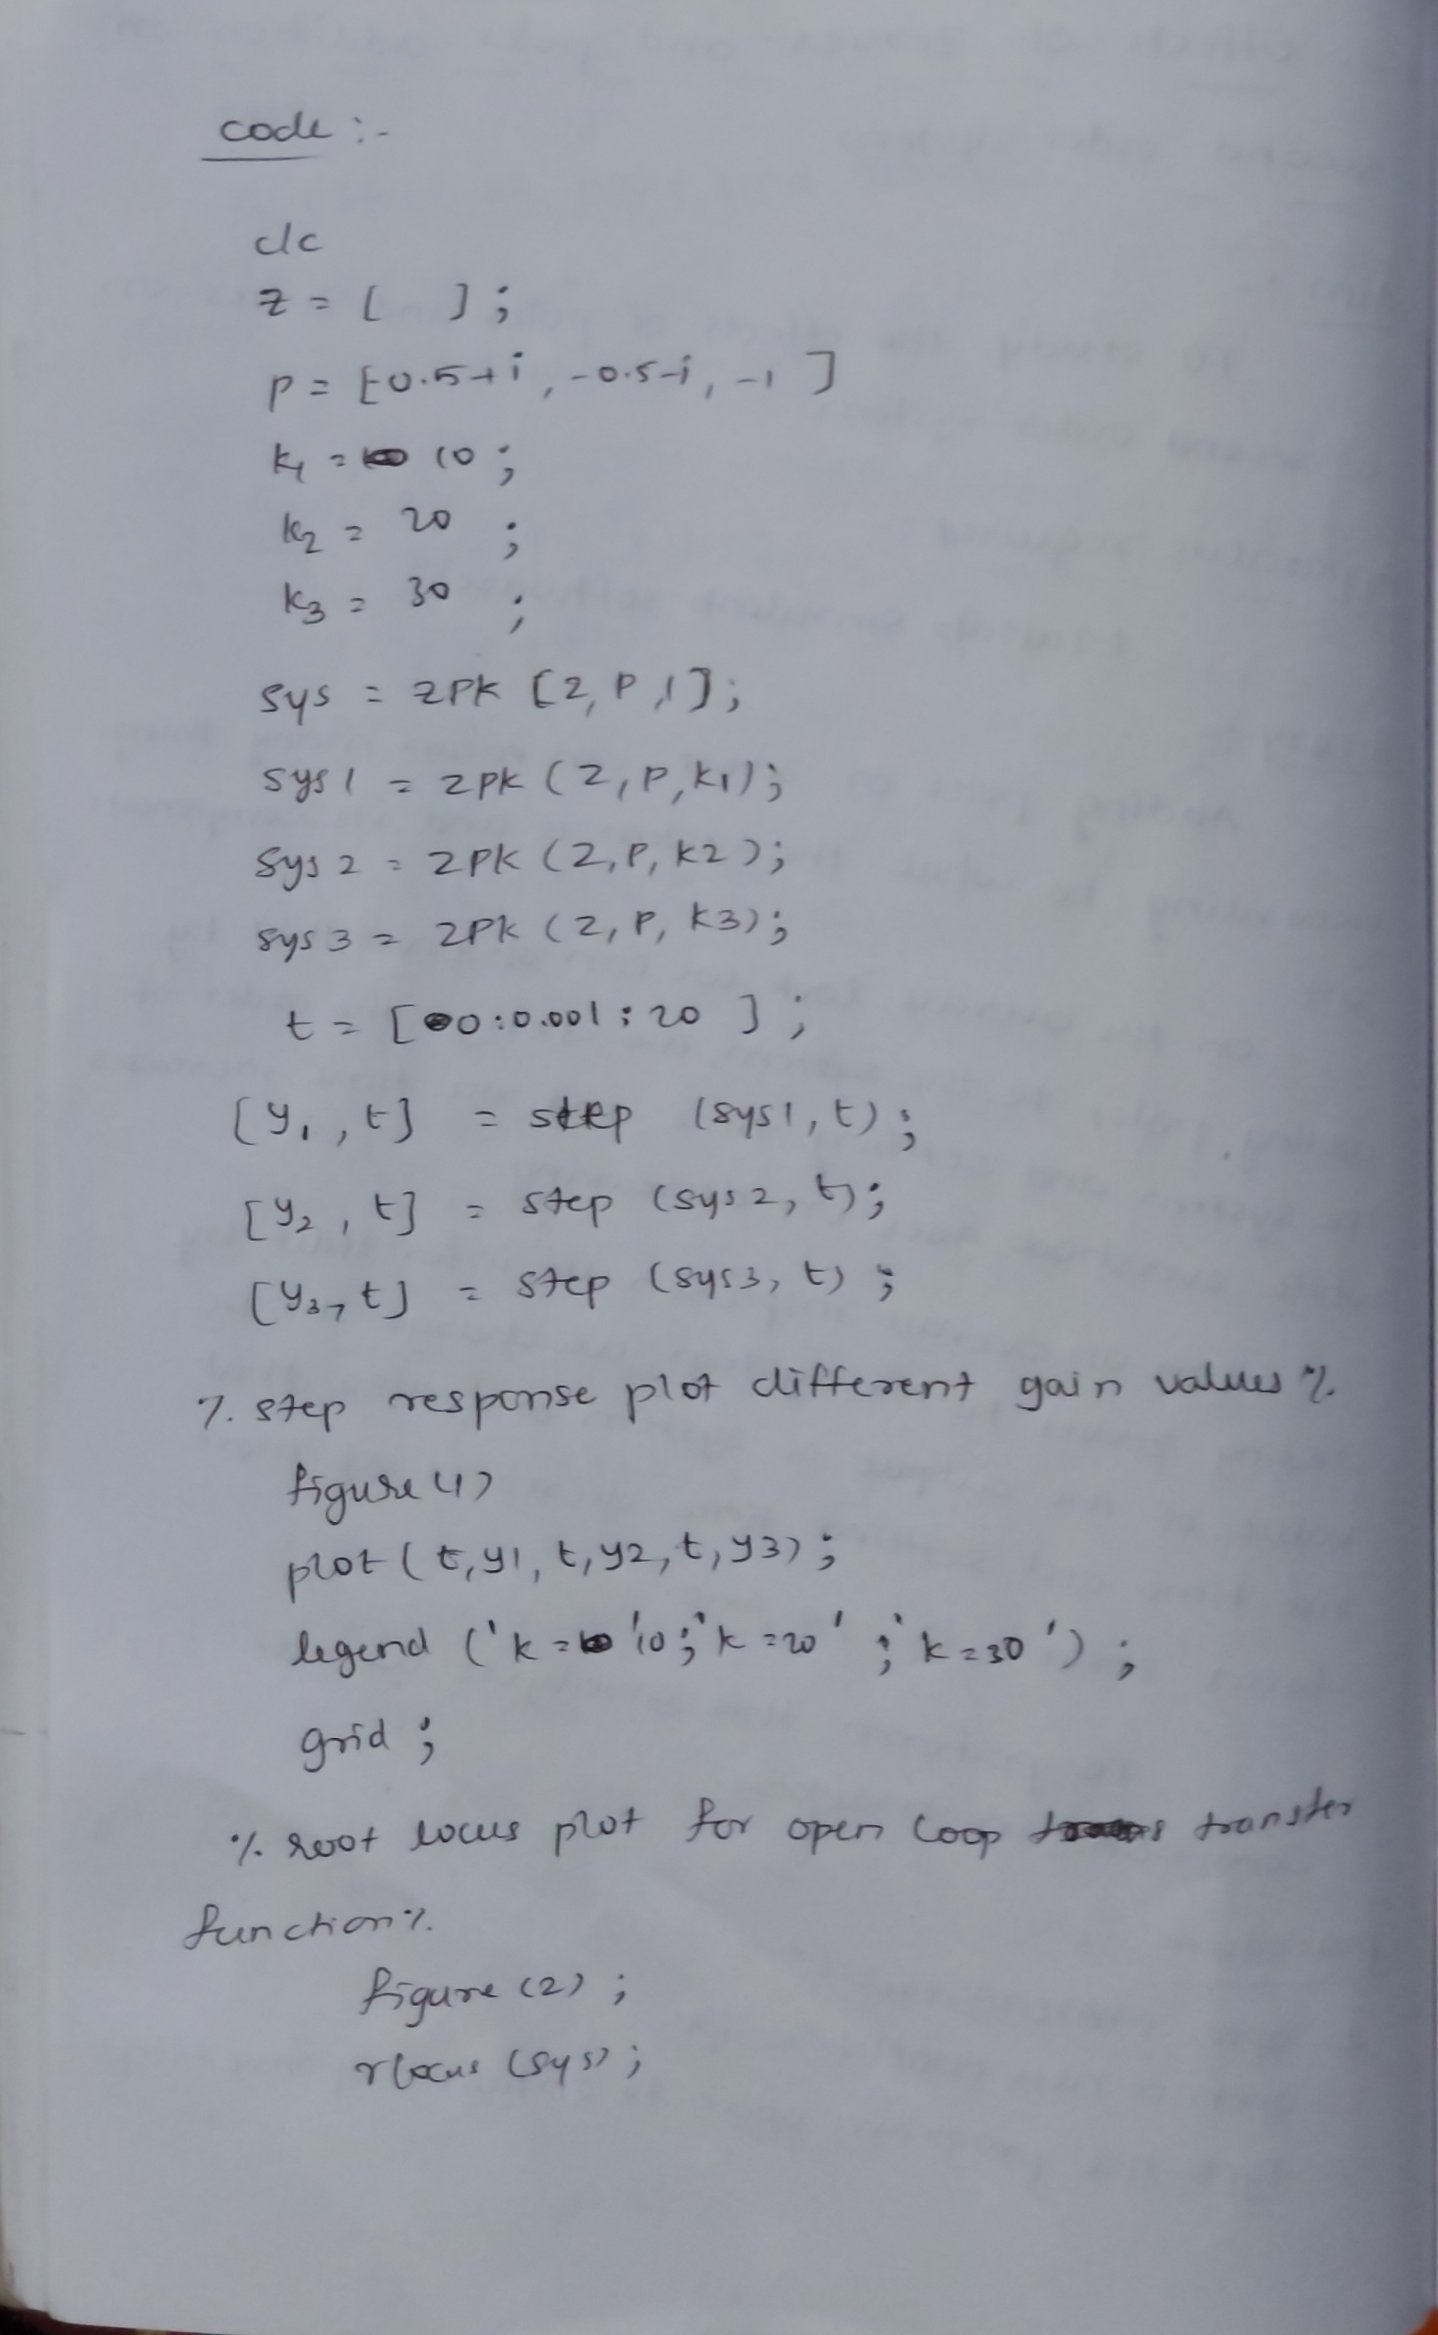 code :-
clc
z = [ ] ;
p = [-0.5+i , -0.5-i , -1 ]
k1 = 10 ;
k2 = 20 ;
k3 = 30 ;
sys = zpk [z, p , 1];
sys 1 = zpk (z, p, k1);
sys 2 = zpk (z, p, k2);
sys 3 = zpk (z, p, k3);
t = [0:0.001:20 ] ;
[y1 , t] = step (sys1, t) ;
[y2 , t] = step (sys2, t) ;
[y3, t] = step (sys3, t) ;
% step response plot different gain values %
figure (1)
plot (t, y1, t, y2, t, y3) ;
legend ('k = '10 ;'k = 20' ;'k = 30') ;
grid ;
% root locus plot for open loop transfer
function %
figure (2) ;
rlocus (sys) ;